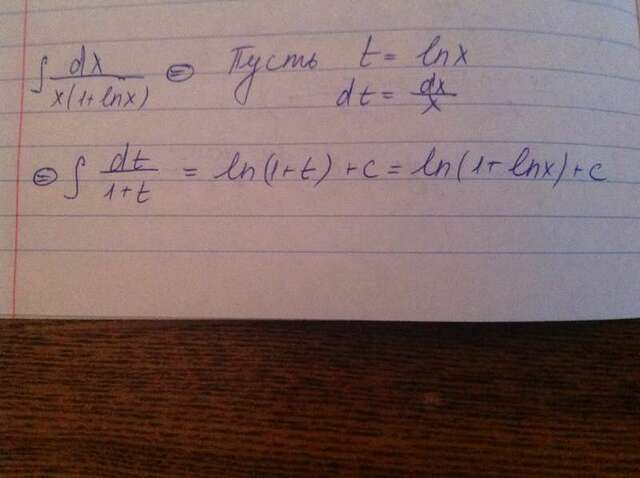 ∫ dx / x(1+lnx) ⊜ Пусть t = lnx
dt = dx/x
⊜ ∫ dt / 1+t = ln(1+t) + c = ln(1+ lnx) + c